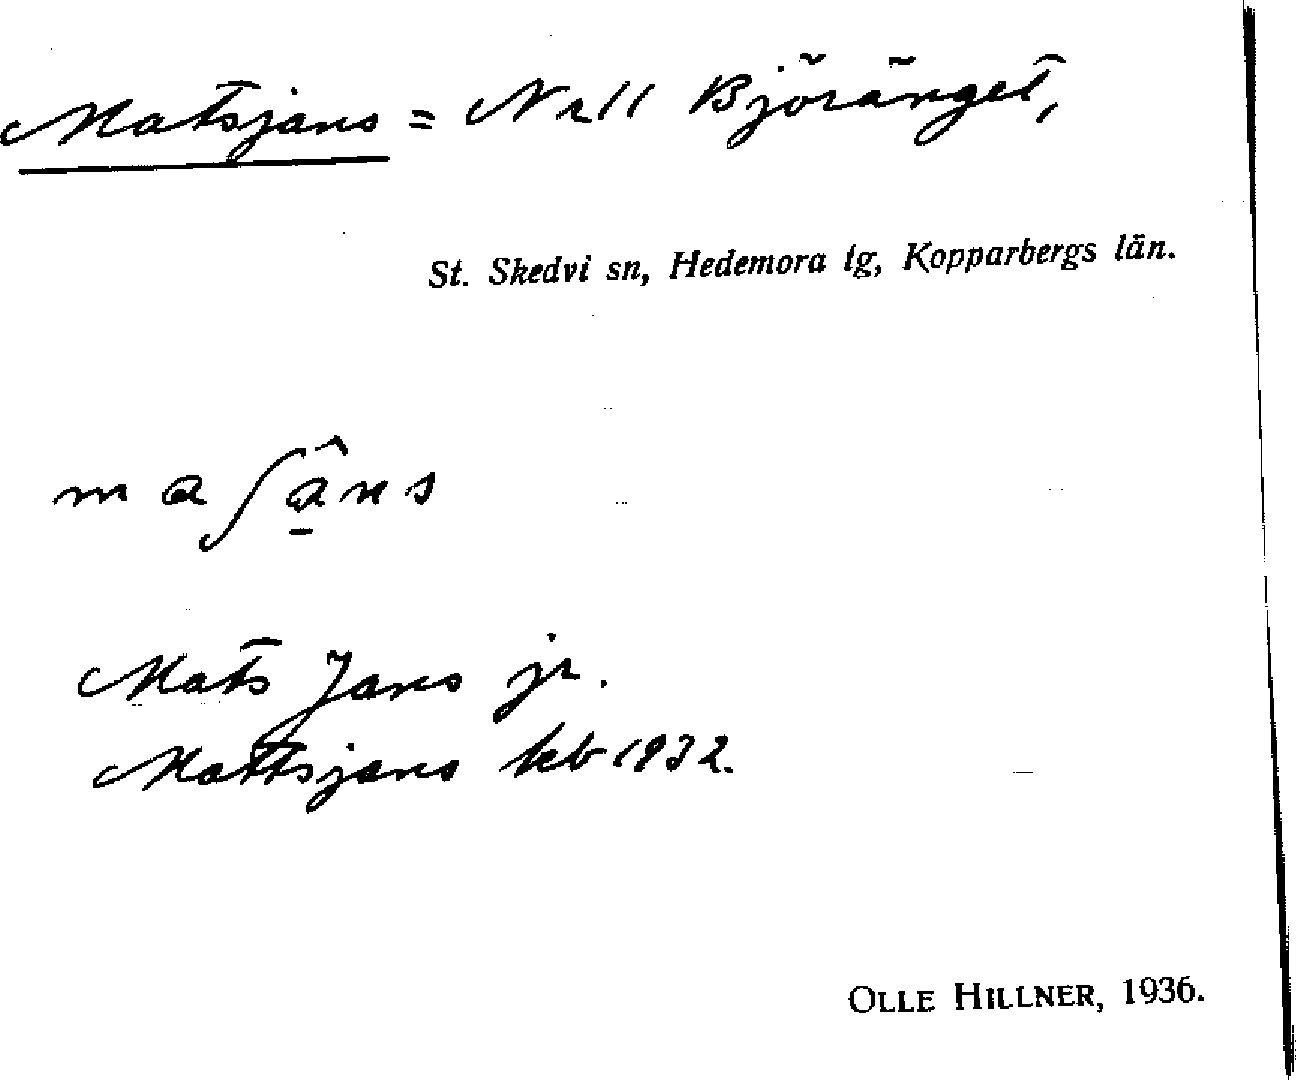 Matsjans = Nr 11 Björänget,
St. Skedvi sn, Hedemora tg, Kopparbergs län.
maʃâ̱ns
Mats Jans jr.
Mattsjans kb 1932.
OLLE HILLNER, 1936.